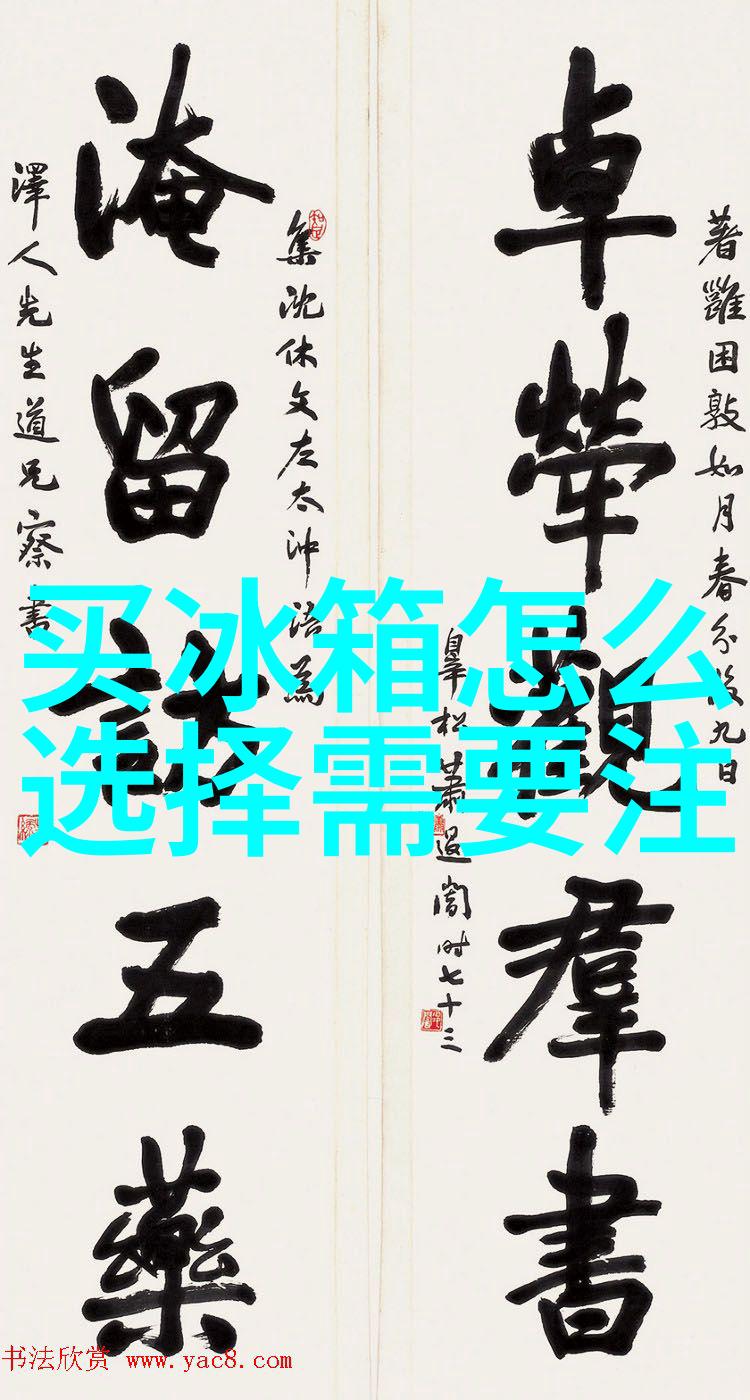 买冰箱怎么
选择需要注
著雝困敦如月春分後九日
卓犖觀羣書
皋松蕭退闇時七十三
集沈休文左太沖語為
淹留五藥
澤人先生道兄察書
书法欣赏 www.yac8.com